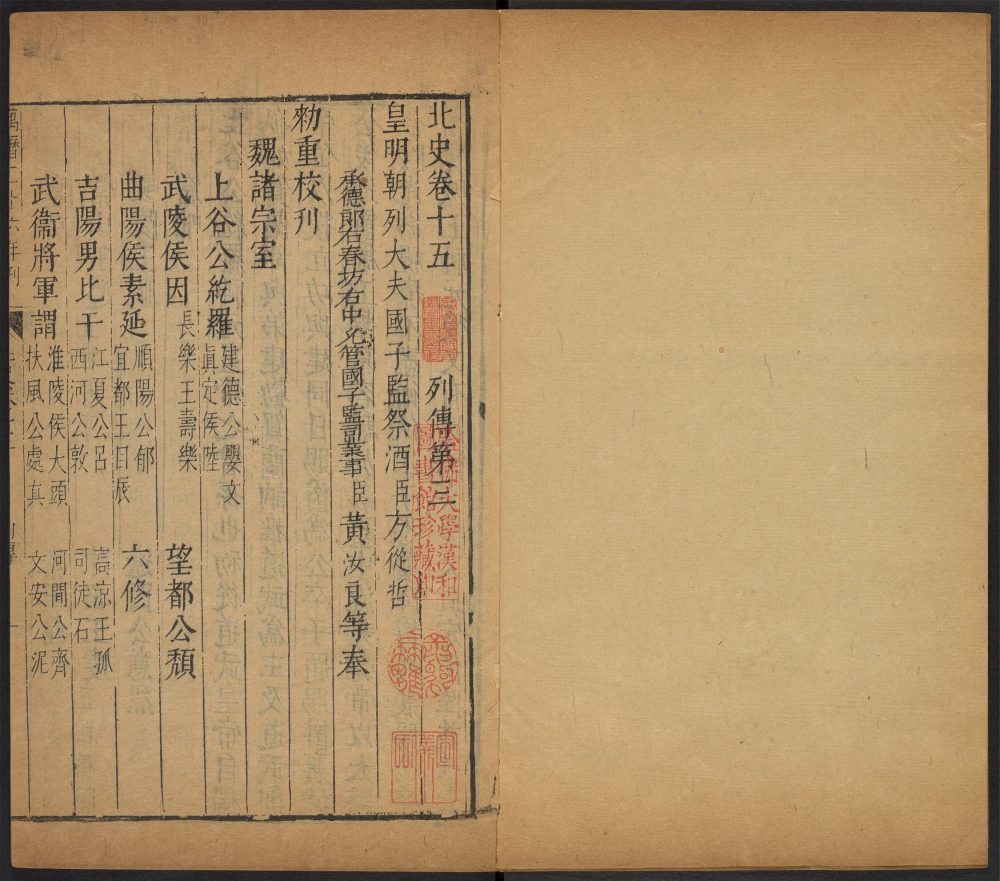 北史卷十五 列傳第三
皇明朝列大夫國子監祭酒臣方從哲
承德郎右春坊右中允管國子監司業事臣黃汝良等奉
勑重校刊
魏諸宗室
上谷公紇羅 建德公嬰文
真定侯陸
武陵侯因 長樂王壽樂 望都公頹
曲陽侯素延 順陽公郁
宜都王目辰 六修
吉陽男比干 江夏公呂
西河公敦 高涼王孤
司徒石
武衞將軍謂 淮陵侯大頭
扶風公處真 河間公齊
文安公泥
萬曆二十六年刊
哈佛大學漢和
圖書館珍藏印